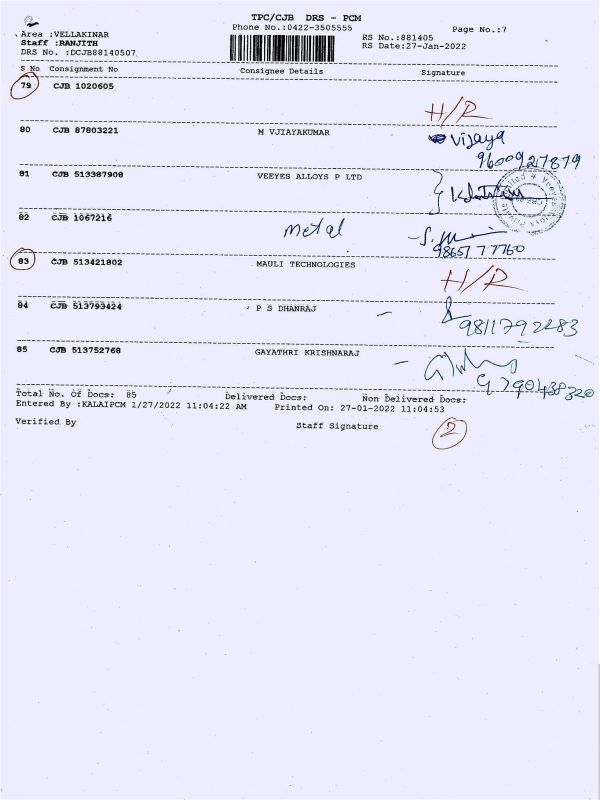 2
TPC/CJB DRS - PCM
Area :VELLAKINAR
Phone No.:0422-3505555
Page No.:7
Staff :RANJITH
RS No.:881405
DRS No. :DCJB88140507
RS Date:27-Jan-2022
S No Consignment No Consignee Details Signature
79 CJB 1020605
H/R
80 CJB 87803221 M VJIAYAKUMAR vijaya
9600927879
81 CJB 513387908 VEEYES ALLOYS P LTD
82 CJB 1067216
Metal
9865777760
83 CJB 513421802 MAULI TECHNOLOGIES
H/R
84 CJB 513793424 P S DHANRAJ
9811792283
85 CJB 513752768 GAYATHRI KRISHNARAJ
Total No. Of Docs: 85 Delivered Docs: Non Delivered Docs:
Entered By :KALAIPCM 1/27/2022 11:04:22 AM Printed On: 27-01-2022 11:04:53
Verified By Staff Signature
2